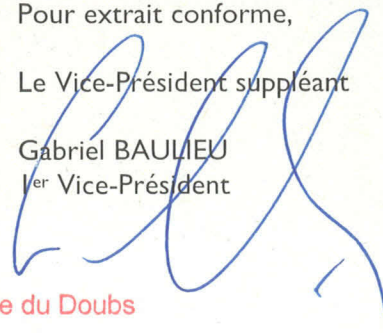 Pour extrait conforme,
Le Vice-Président suppléant
Gabriel BAULIEU
1er Vice-Président
e du Doubs